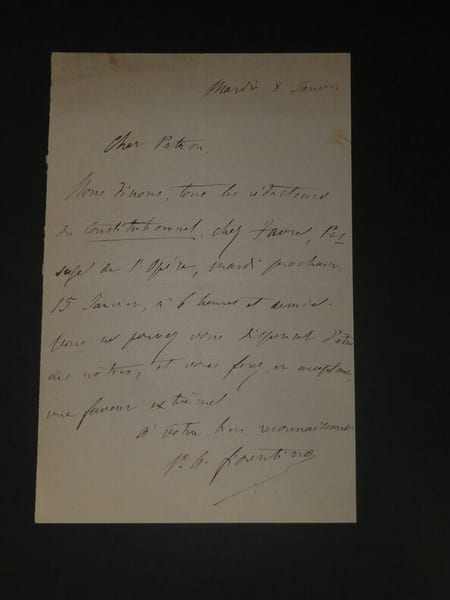 Mardi 8 Janvier.
Cher Patron,
Nous dînons, tous les rédacteurs
du Constitutionnel, chez Favre, Pas
sage de l'Opéra, mardi prochain
15 Janvier, à 6 heures et demie.
Vous ne pouvez vous dispenser d'être
des nôtres, et vous ferez, en acceptant,
une faveur extrême
à votre bien reconnaissant
P. A. Fiorentino